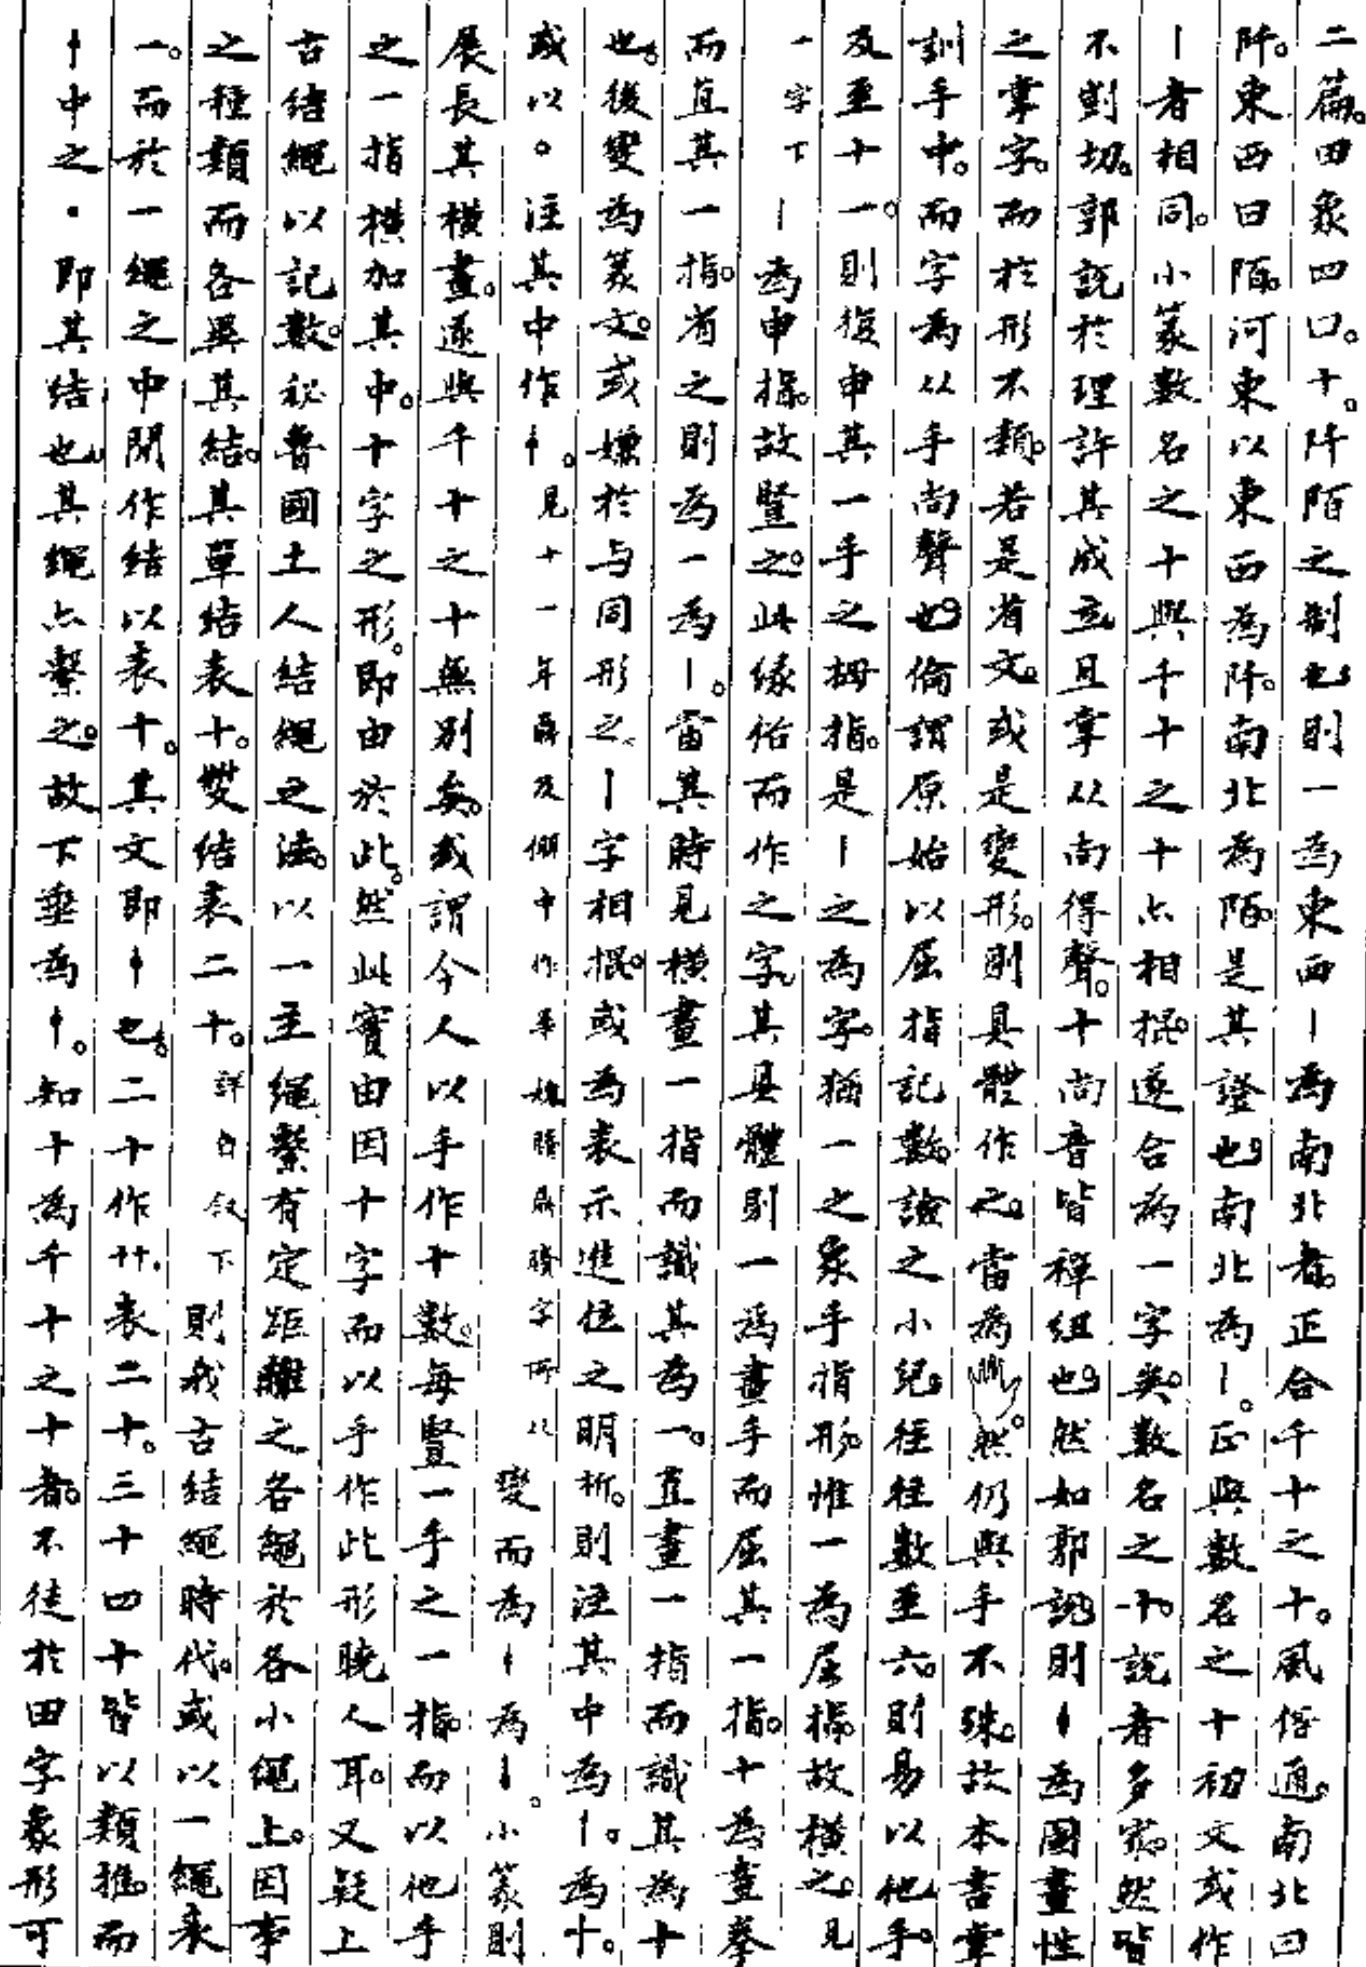 二篇。田象四口。十。阡陌之制也則一為東西丨為南北者。正合千十之十。風俗通。南北曰
阡。東西曰陌。河東以東西為阡。南北為陌。是其證也。南北為丨。正與數名之十初文或作
丨者相同。小篆數名之十與千十之十亦相混。遂合為一字矣。數名之十。說者多寤。然皆
不剴切。郭說於理許其成立且掌从尚得聲。十尚音皆禪紐也。然如郭說則為圖畫性
之掌字。而於形不類。若是省文。或是變形。則具體作之。當為 然仍與手不殊。故本書掌
訓手中。而字為从手尚聲也。倫謂原始以屈指記數。證之小兒。往往數至六。則易以他手。
及至十一。則復申其一手之拇指。是丨之為字。猶一之象手指形。惟一為屈指。故橫之。見
一字下丨為申指。故豎之。此緣俗而作之字。其具體則一為畫手而屈其一指。十為畫拳
而直其一指。省之則為一為丨。當其時見橫畫一指而識其為一。直畫一指而識其為十
也。後變為篆文。或嫌於与同形之丨字相混。或為表示進位之明析。則注其中為丨。為十。
或以。注其中作。見十一年 及 中作 字所以變而為為。小篆則
展長其橫畫。遂與千十之十無別矣。或謂今人以手作十數。每豎一手之一指。而以他手
之一指橫加其中。十字之形。即由於此。然此實由因十字而以手作此形曉人耳。又疑上
古結繩以記數。秘魯國土人結繩之法。以一主繩繫有定距離之各繩於各小繩上。因事
之種類而各異其結。其單結表十。雙結表二十。詳自叙下則我古結繩時代。或以一繩表
一。而於一繩之中間作結以表十。其文即也。二十作廾。表二十。三十四十皆以類推。而
中之・即其結也。其繩亦繫之。故下垂為。知十為千十之十者。不徒於田字象形可